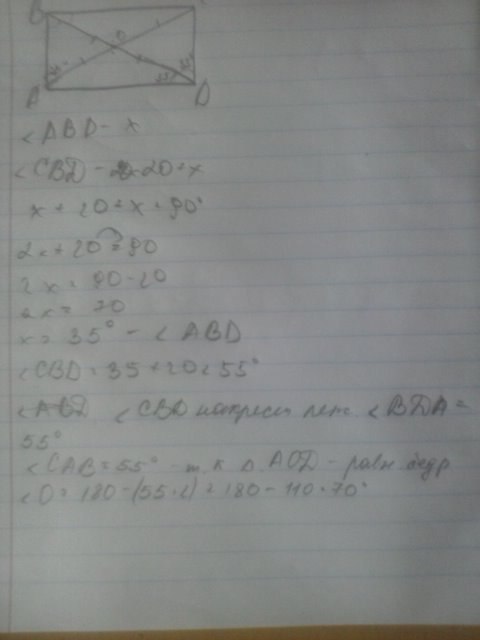 B
O
A D
35°
<ABD - x
<CBD - 20+x
x + 20 + x = 90°
2x + 20 = 90
2x = 90 - 20
2x = 70
x = 35° - <ABD
<CBD = 35 + 20 = 55°
<CBD накрест леж. <BDA =
55°
<CAB = 55° т.к Δ AOD - равн бедр
<O = 180 - (55·2) = 180 - 110 = 70°